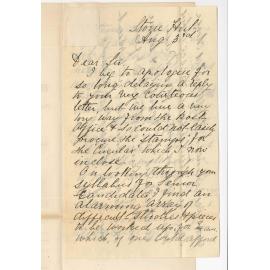 Stone Hut
Aug 3rd
Dear Sir
I beg to apologise for
so long delaying a reply
to your very courteous
letter, but we live a very
long way from the Post
Office & so could not easily
procure the stamps for
the Circular which I now
inclose.
On looking through your
syllabus for Senior
Candidates I find an
alarming array of
different studies & pieces
to be worked up for exam.
which, if one could afford